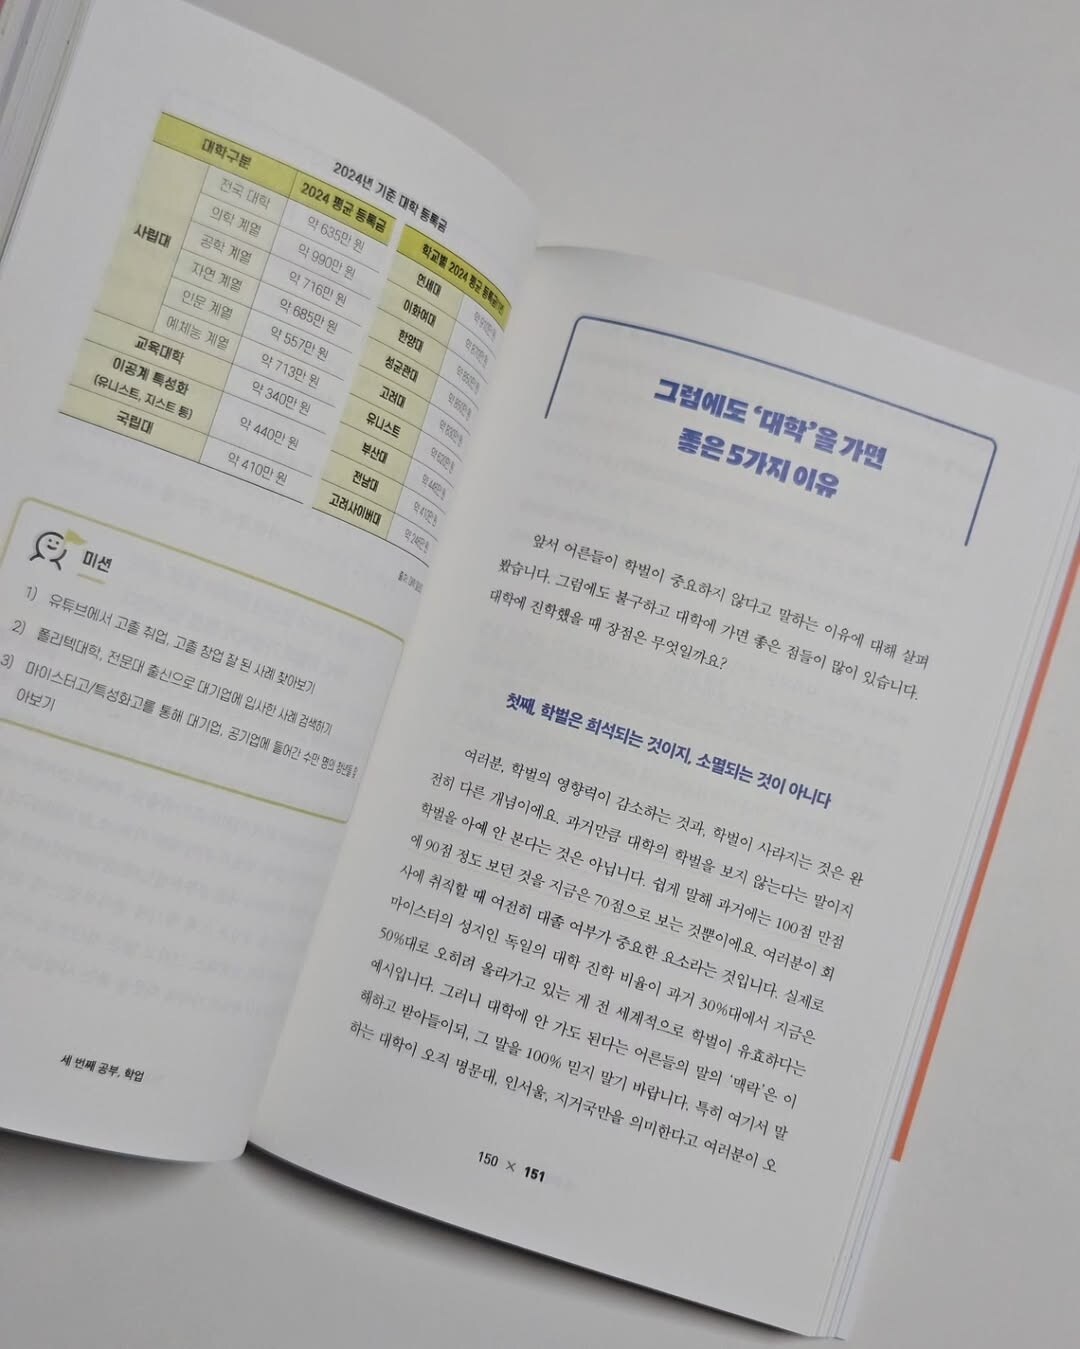 2024년 기준 대학 등록금
대학구분 2024 평균 등록금
사립대
전국 대학 약 635만 원
의학 계열 약 990만 원
공학 계열 약 716만 원
자연 계열 약 685만 원
인문 계열 약 557만 원
예체능 계열 약 713만 원
교육대학 약 340만 원
이공계 특성화
(유니스트, 지스트 등) 약 440만 원
국립대 약 410만 원
학교별 2024 평균 등록금
연세대
이화여대
한양대
성균관대
고려대
유니스트
부산대
전남대
고려사이버대
미션
1) 유튜브에서 고졸 취업, 고졸 창업 잘 된 사례 찾아보기
2) 폴리텍대학, 전문대 출신으로 대기업에 입사한 사례 검색하기
3) 마이스터고/특성화고를 통해 대기업, 공기업에 들어간 수만 명의 청년들 찾
아보기
세 번째 공부, 학업
그럼에도 ‘대학’을 가면
좋은 5가지 이유
앞서 어른들이 학벌이 중요하지 않다고 말하는 이유에 대해 살펴
봤습니다. 그럼에도 불구하고 대학에 가면 좋은 점들이 많이 있습니다.
대학에 진학했을 때 장점은 무엇일까요?
첫째, 학벌은 희석되는 것이지, 소멸되는 것이 아니다
여러분, 학벌의 영향력이 감소하는 것과, 학벌이 사라지는 것은 완
전히 다른 개념이에요. 과거만큼 대학의 학벌을 보지 않는다는 말이지
학벌을 아예 안 본다는 것은 아닙니다. 쉽게 말해 과거에는 100점 만점
에 90점 정도 보던 것을 지금은 70점으로 보는 것뿐이에요. 여러분이 회
사에 취직할 때 여전히 대졸 여부가 중요한 요소라는 것입니다. 실제로
마이스터의 성지인 독일의 대학 진학 비율이 과거 30%대에서 지금은
50%대로 오히려 올라가고 있는 게 전 세계적으로 학벌이 유효하다는
예시입니다. 그러니 대학에 안 가도 된다는 어른들의 말의 ‘맥락’은 이
해하고 받아들이되, 그 말을 100% 믿지 말기 바랍니다. 특히 여기서 말
하는 대학이 오직 명문대, 인서울, 지거국만을 의미한다고 여러분이 오
150 × 151